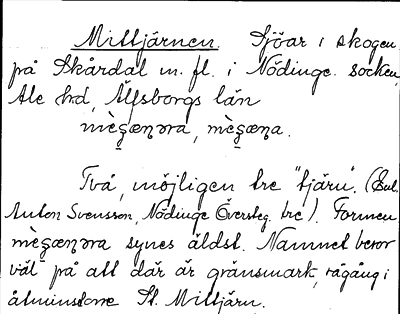 Mittjärnen. Sjöar i skogen
på Skårdal m. fl. i Nödinge socken,
Ale hd, Älfsborgs län
mὲgæṇəra, mὲgæṇa.
Två, möjligen tre "tjärn". (Enl.
Anton Svensson, Nödinge Översteg. tre). Formen
mὲgæṇəra synes äldst. Namnet beror
väl på att där är gränsmark, rågång i
åtminstone St. Mittjärn.